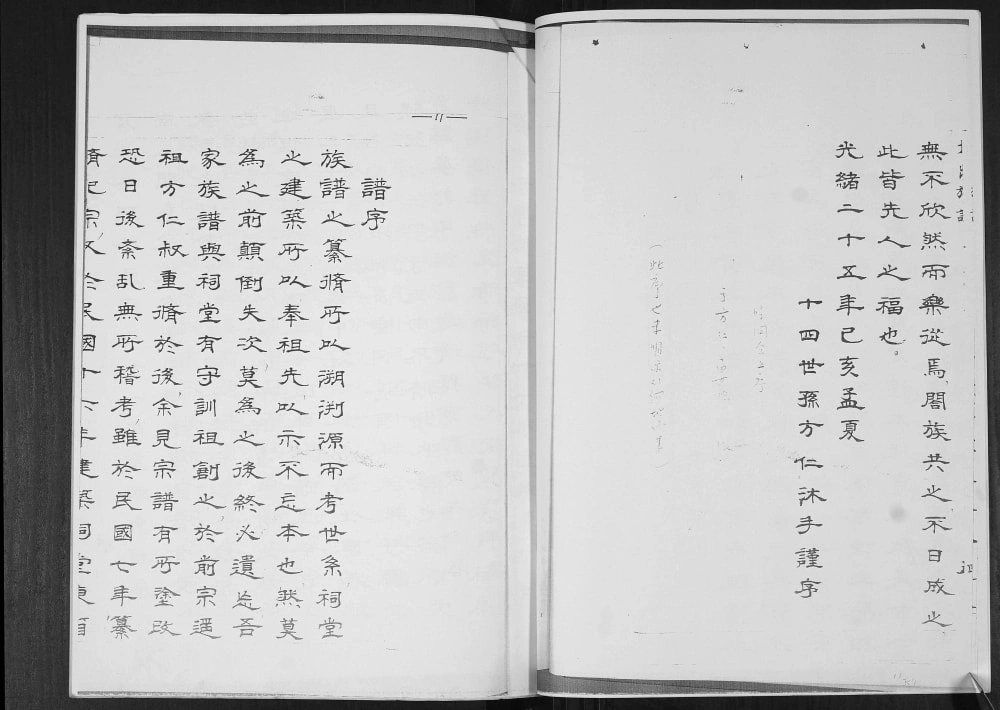 無不欣然而樂從焉、閤族共之、不日成之
此皆先人之福也。
光緒二十五年己亥孟夏
十四世孫方仁沐手謹序
11
譜序
族譜之纂脩所以溯渊源而考世系祠堂
之建築所以奉祖先、以示不忘本也、然莫
為之前顛倒失次、莫為之後終必遺忘吾
家族譜與祠堂有守訓祖創之、於前宗遥
祖方仁叔重脩於後、余見宗譜有所塗改
恐日後紊乱無所稽考、雖於民國七年、纂
脩已宗、又於民國十六年建築祠堂東首